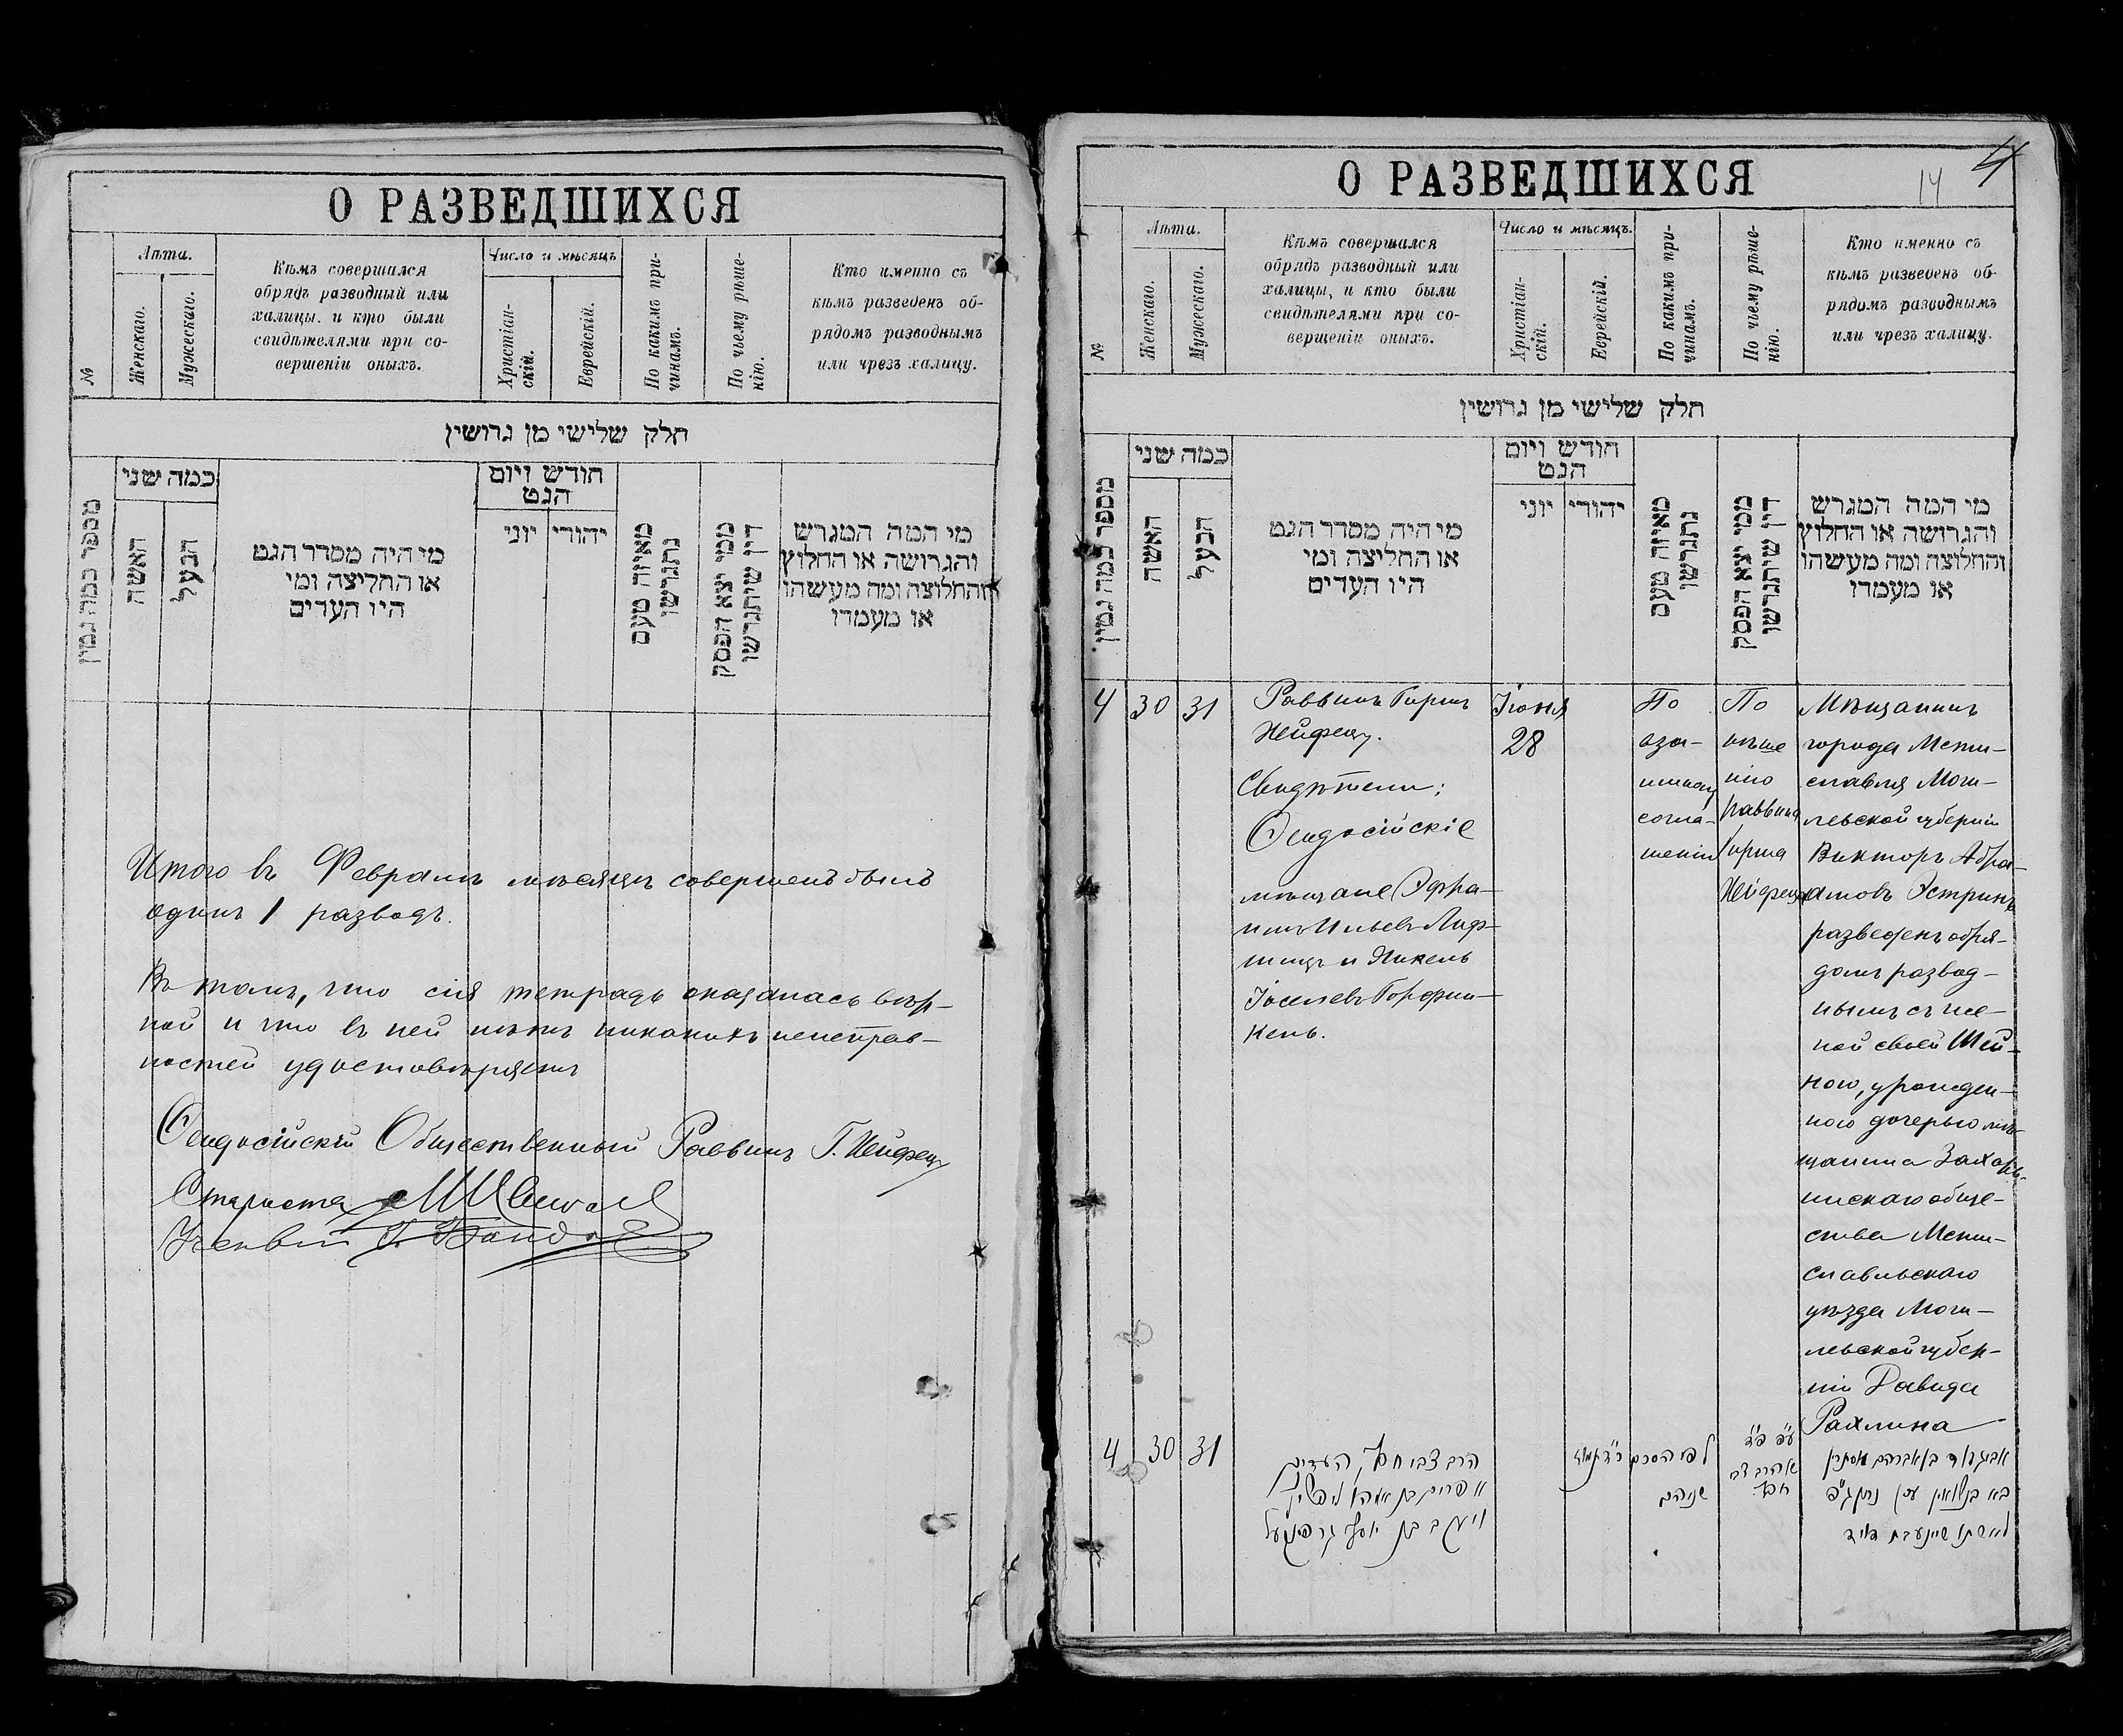 О РАЗВЕДШИХСЯ
№
Лѣта.
Женскаго.
Мужескаго.
Кѣмъ совершался
обрядъ разводный или
халицы, и кто были
свидѣтелями при со-
вершеніи оныхъ.
Число и мѣсяцъ
Христіан-
скій.
Еврейскій.
По какимъ при-
чинамъ.
По чьему рѣше-
нію.
Кто именно съ
кѣмъ разведенъ об-
рядомъ разводнымъ
или чрезъ халицу.
חלק שלישי מן גרושין
מספר כמה גטין
כמה שני
האשה
הבעל
מי היה מסדר הגט
או החליצה ומי
היו העדים
חודש ויום
הגט
יוני
יהודי
מאיזה טעם
נתגרשו
ממי יצא הפסק
דין שיתגרשו
מי המה המגרש
והגרושה או החלוץ
והחלוצה ומה מעשהו
או מעמדו
Итого въ Февралѣ мѣсяцѣ совершенъ былъ
одинъ 1 разводъ.
Въ томъ, что сія тетрадь оказалась вѣр-
ной и что въ ней нѣтъ никакихъ неисправ-
ностей удостовѣряемъ
Ѳеодосійскій Общественный Раввинъ Г. Хейфецъ
Староста
О РАЗВЕДШИХСЯ
14
4
№
Лѣта.
Женскаго.
Мужескаго.
Кѣмъ совершался
обрядъ разводный или
халицы, и кто были
свидѣтелями при со-
вершеніи оныхъ.
Число и мѣсяцъ.
Христіан-
скій.
Еврейскій.
По какимъ при-
чинамъ.
По чьему рѣше-
нію.
Кто именно съ
кѣмъ разведенъ об-
рядомъ разводнымъ
или чрезъ халицу.
חלק שלישי מן גרושין
מספר כמה גטין
כמה שני
האשה
הבעל
מי היה מסדר הגט
או החליצה ומי
היו העדים
חודש ויום
הגט
יוני
יהודי
מאיזה טעם
נתגרשו
ממי יצא הפסק
דין שיתגרשו
מי המה המגרש
והגרושה או החלוץ
והחלוצה ומה מעשהו
או מעמדו
4
30
31
Раввинъ Гиршъ
Хейфецъ.
Свидѣтели:
Ѳеодосійскіе
мѣщане Эфра-
имъ Ильевъ Лиф-
шицъ и Янкель
Іоселевъ Горфин-
кель.
Іюня
28
По
вза-
имному
согла-
шенію
По
рѣше
нію
раввина
Гирша
Хейфеца
Мѣщанинъ
города Мсти-
славля Моги-
левской губерніи
Викторъ Абра-
амовъ Эстринъ
разведенъ обря-
домъ развод-
нымъ съ же-
ной своей Шей-
ною, урожден-
ною дочерью мѣ-
щанина Захарь-
инскаго обще-
ства Мсти-
славльскаго
уѣзда Моги-
левской губер-
ніи Давида
Рахлина
4
30
31
הרב צבי חפץ, העדים
לפי הסכם
שניהם
אביגדור בן אברהם אסתרין
לאשתו שיינע בת דוד